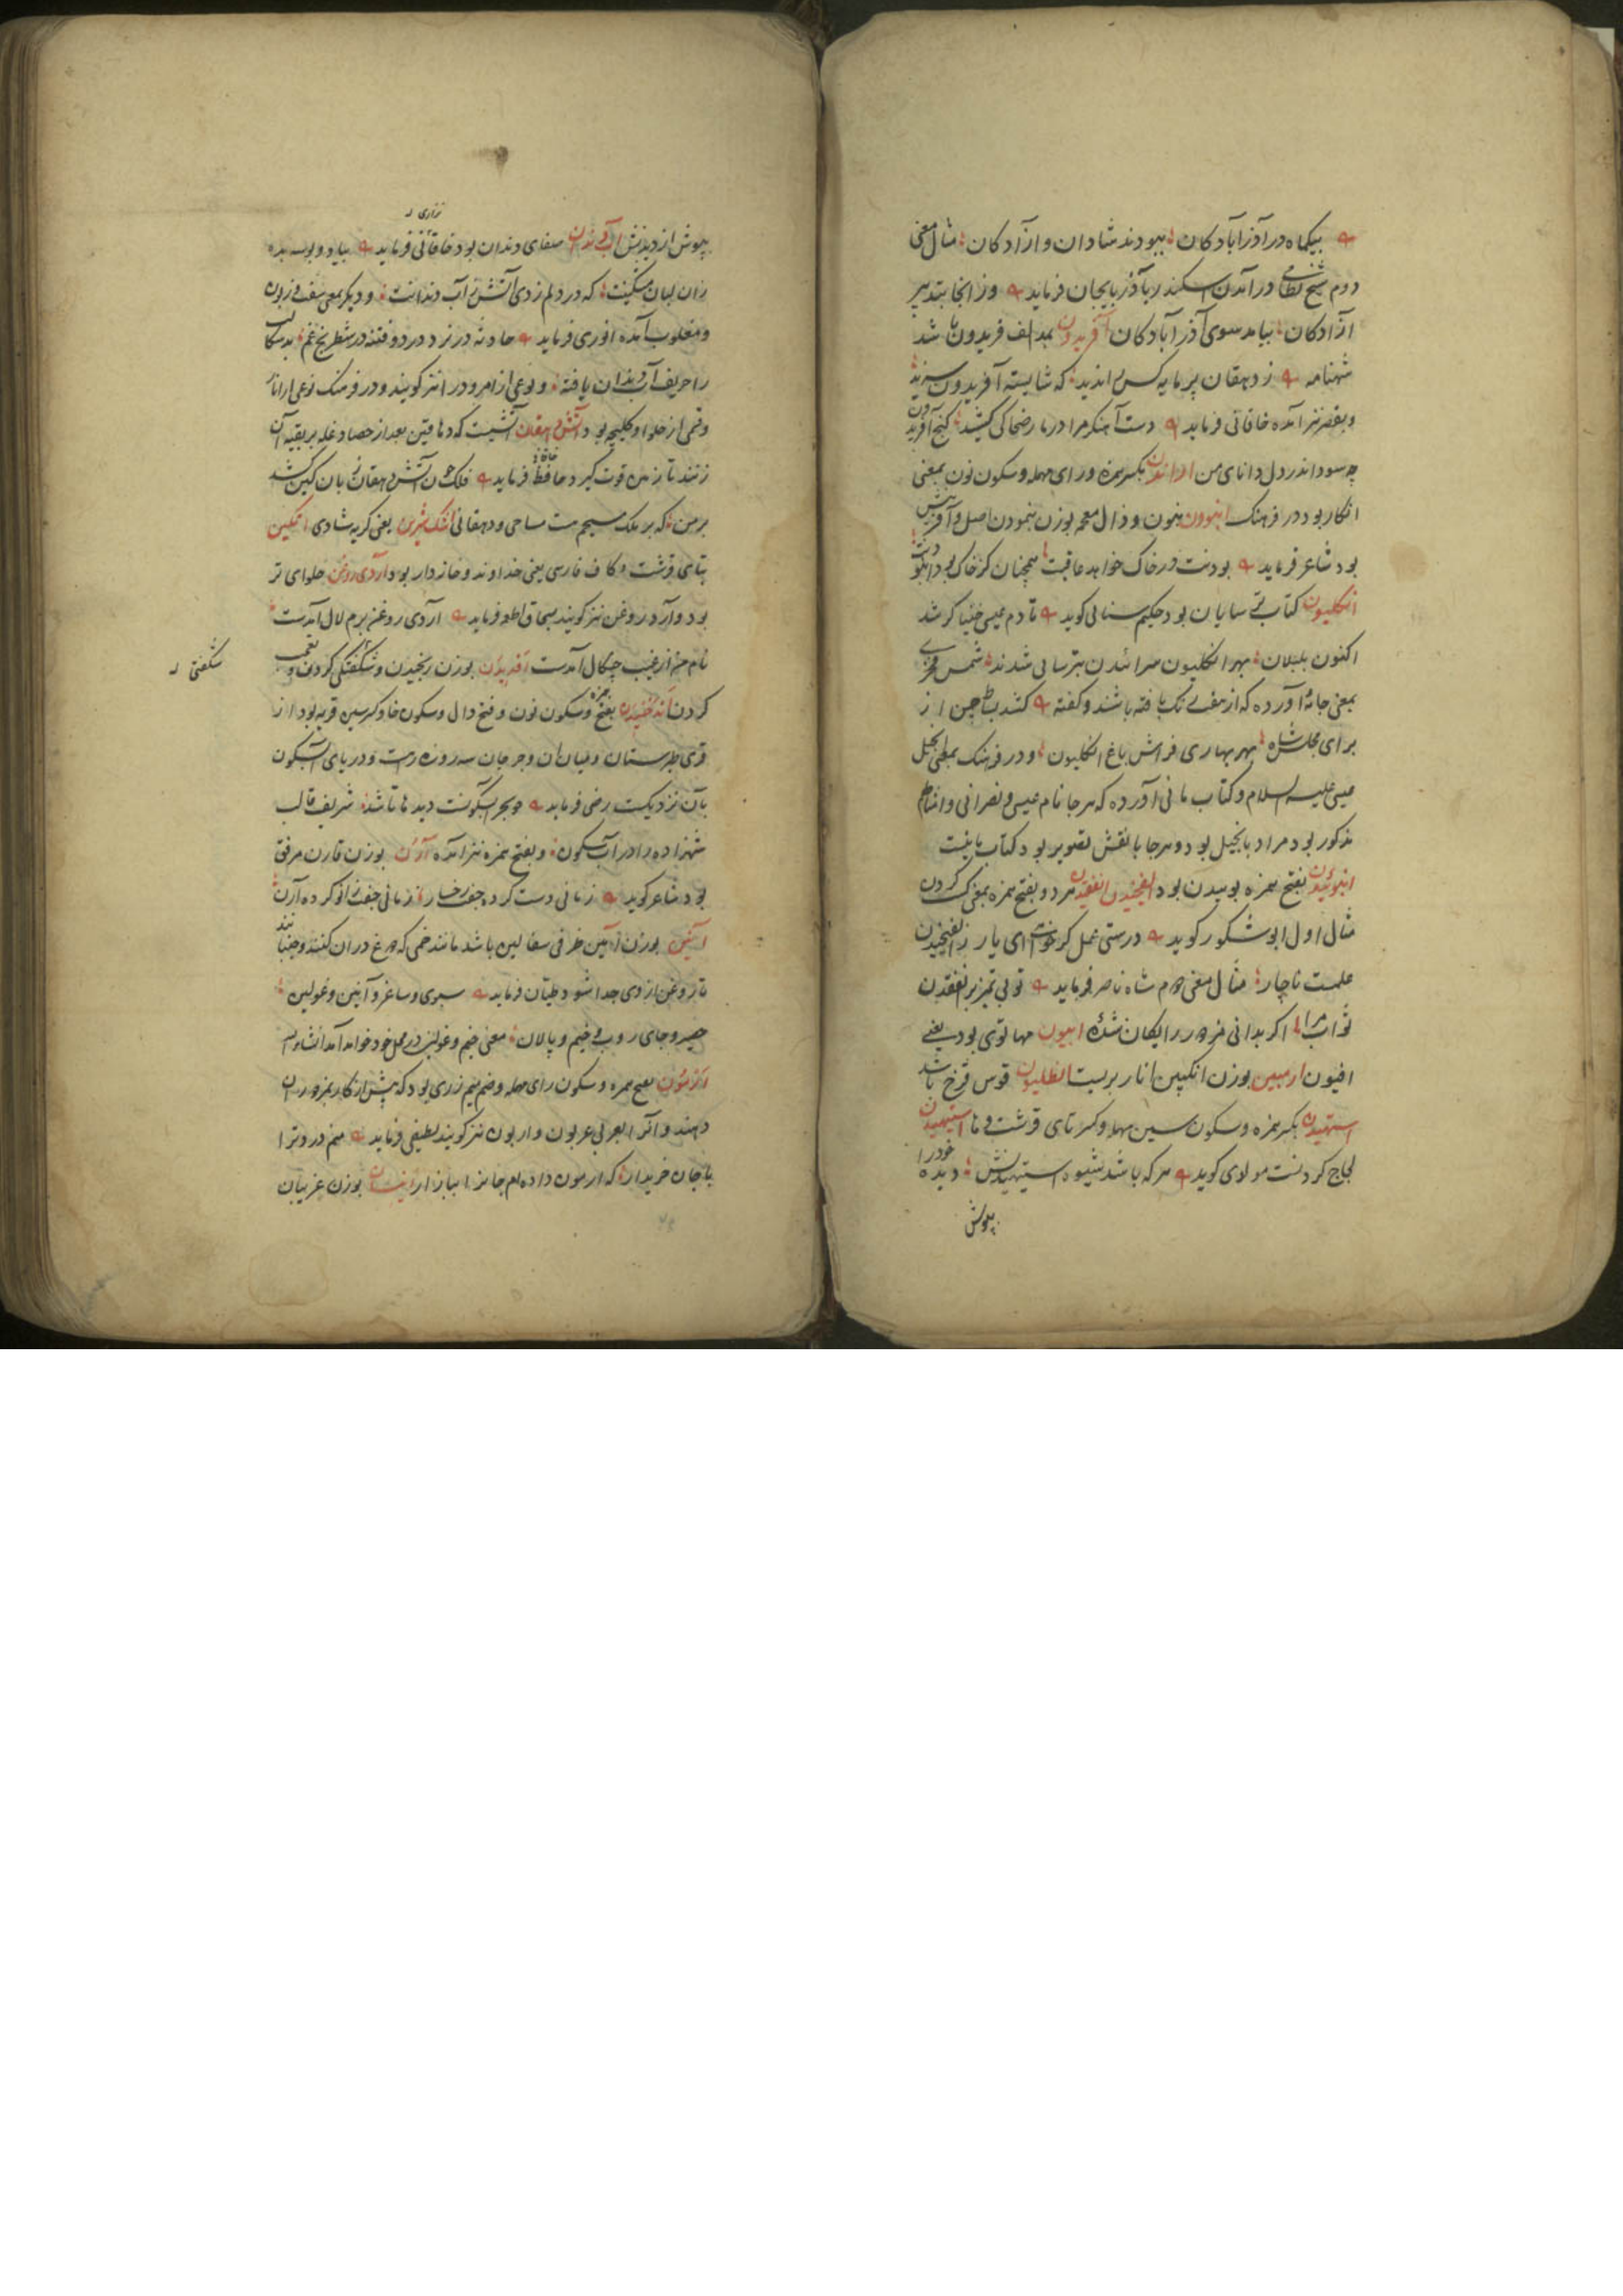 بیکماه در آذرآبادکان ببودند شادان و ازادکان مثال معنی
دوم شیخ نظامی در آمدن اسکندر بآذربایجان فرماید وز انجا بتدبیر
ازادکان بیامد سوی آذرآبادکان آفریدون بمد الف فریدون باشد
شهنامه ز دهقان پرمایه کس اندید که شایسته آفریدون سزید
و بقصر نیز آمده خاقانی فرماید دست آهنکر مرا در مار ضحاکی کشید کنج افریدون
چه سود اندر دل دانای من بکسر همزه و رای مهمله و سکون نون بمعنی
انکار بود در فرهنک بنون و ذال معجمه بوزن بنمودن اصل و آفرینش
بود شاعر فرماید بودنت در خاک خواهد عاقبت همچنان کز خاک بود
انکلیون کتاب ترسایان بود حکیم سنائی کوید تا دم عیسی کر شد
اکنون بلبلان بهر انکلیون سرائیدن بترسایی شدند شمس فخری
بمعنی جامهٔ آورده که از هفت رنک بافته باشند و کفته کشد چین از
برای مجلس شاه بهر بهاری فراش باغ انکلیون و در فرهنک بمعنی انجیل
عیسی علیه السلام و کتاب مانی آورده که هر جا نام عیسی و نصرانی و امثالها
مذکور بود مراد بانجیل بود و هر جا با نقش تصویر بود کتاب مانیست
بفتح همزه بوییدن بود الفنجیدن الفغدن هر دو بفتح همزه بمعنی کسب کردن
مثال اول ابو شکور کوید درستی عمل کر ای یار ز الفنجیدن
علمست ناچار مثال معنی دوم شاه ناصر فرماید تو بی تمیز بر الفغدن
ثواب مرا اکر بدانی مزدور رایکان شدهٔ ابیون مهاتوی بود یعنی
افیون ارمبین بوزن انکبین انار بریست انطلیون قوس قزح باشد
استهیدن بکسر همزه و سکون سین مهمله و کسر تای قرشت و ها استیهیدن
لجاج کردنست مولوی کوید هر که باشد شیوه استیهیدنش دیده خود را
بپوش
نزاری
بپوش از دیدنش آب دندان صفای دندان بود خاقانی فرماید بیا و دو بوسه بده
زان لبان مسکینت که در دلم زدی آتش ز آب دندانت و دیکر بمعنی و زبون
و مغلوب آمده انوری فرماید حادثه در نرد درد و فتنه در شطرنج غم بدسکالت
را حریف آب دندان یافته و نوعی از امرود را نیز کویند و در فرهنک نوعی از انار
و قسمی از حلوا و کلیچه بود آتش دهقان آتشیست که دهاقین بعد از حصاد غله بر بقیه آن
زنند تا زمین قوت کیرد خاقانی فرماید فلک چون آتش دهقان زبان کین کشد
بر من که بر ملک مسیحم هست مساحی و دهقانی اشک شیرین یعنی کریه شادی
بتای قرشت و کاف فارسی یعنی خداوند و خانه دار بود آردی روغن حلوای تر
بود و آرد روغن نیز کویند بسحاق اطعمه فرماید آردی روغن برم لال آمدست
نام من از غیب چنکال آمدست بوزن رنجیدن و شکفتکی کردن و تعجب
شکفتی
کردن بفتح همزه و سکون نون و فتح دال و سکون خا و کسر سین قریه بود از
قری طبرستان و میان آن و جرجان سه روزه رهست و دریای آبسکون
بآن نزدیکست رضی فرماید و بحر آبسکونت دیدها تا شد شریف قالب
شهزاده را در آب سکون و بفتح همزه نیز آمده آرن بوزن قارن مرفق
بود شاعر کوید زمانی دست کرده جفت رخسار زمانی جفت زانو کرده آرن
آئین بوزن آمین ظرفی سفالین باشد مانند خمی که دوغ در آن کنند و جنبانند
تا روغن از وی جدا شود طیان فرماید سبوی و ساغر و آنین و غولین
حصیر و جای روب و خیم و پالان معنی خیم و غولین در محل خود خواهد آمد انشاءالله
بفتح همزه و سکون رای مهمله و ضم میم زری بود که پیش از کار بمزدوران
دهند و آنرا بعربی عربون و اربون نیز کویند لطیفی فرماید منم درو ترا
با جان خریدار که ارمون داده ام جانرا ببازار بوزن غریبان